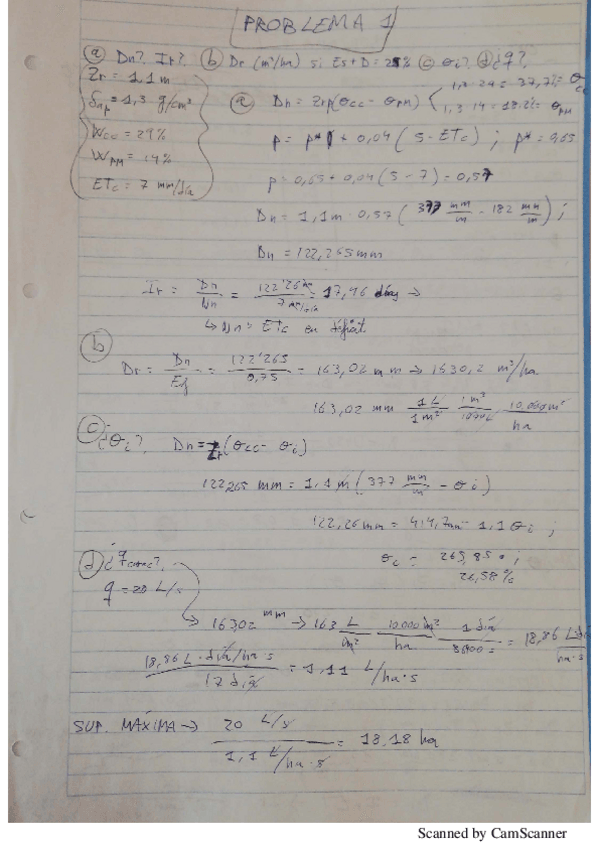 PROBLEMA 1
(a) Dn? Ir? (b) Dr (m³/ha) si Es+D = 25% (c) θi? (d) ¿q?
Zr = 1,1 m
δap = 1,3 g/cm³
Wcc = 29%
WPM = 14%
ETc = 7 mm/día
1,3 · 29 = 37,7% θcc
(a) Dn = Zrp(θcc - θPM)
1,3 · 14 = 18.2% θPM
p = p* + 0,04 (5 - ETc) ; p* = 0,65
p = 0,65 + 0,04 (5 - 7) = 0,57
Dn = 1,1m · 0,57 (377 mm/m - 182 mm/m) ;
Dn = 122,265 mm
Ir = Dn/Nn = 122'26/7 mm/día = 17,46 días →
↳ Nn = ETc en déficit
(b)
Dr = Dn/Ef = 122'265/0,75 = 163,02 mm → 1630,2 m³/ha
163,02 mm 1L/1m² 1m³/1000L 10.000m²/ha
(c) ¿θi? Dn = Zr(θcc - θi)
122,265 mm = 1,1m (377 mm/m - θi)
122,26mm = 414,7mm - 1,1θi ;
θi = 265,85 ;
26,58%
(d) ¿q?
q = 20 L/s
163,02 mm → 163 L/m² 10.000 m²/ha 1 día/86400 s = 18,86 L día/ha·s
18,86 L · día/ha·s / 17 día = 1,11 L/ha·s
SUP. MÁXIMA → 20 L/s / 1,1 L/ha·s = 18,18 ha
Scanned by CamScanner